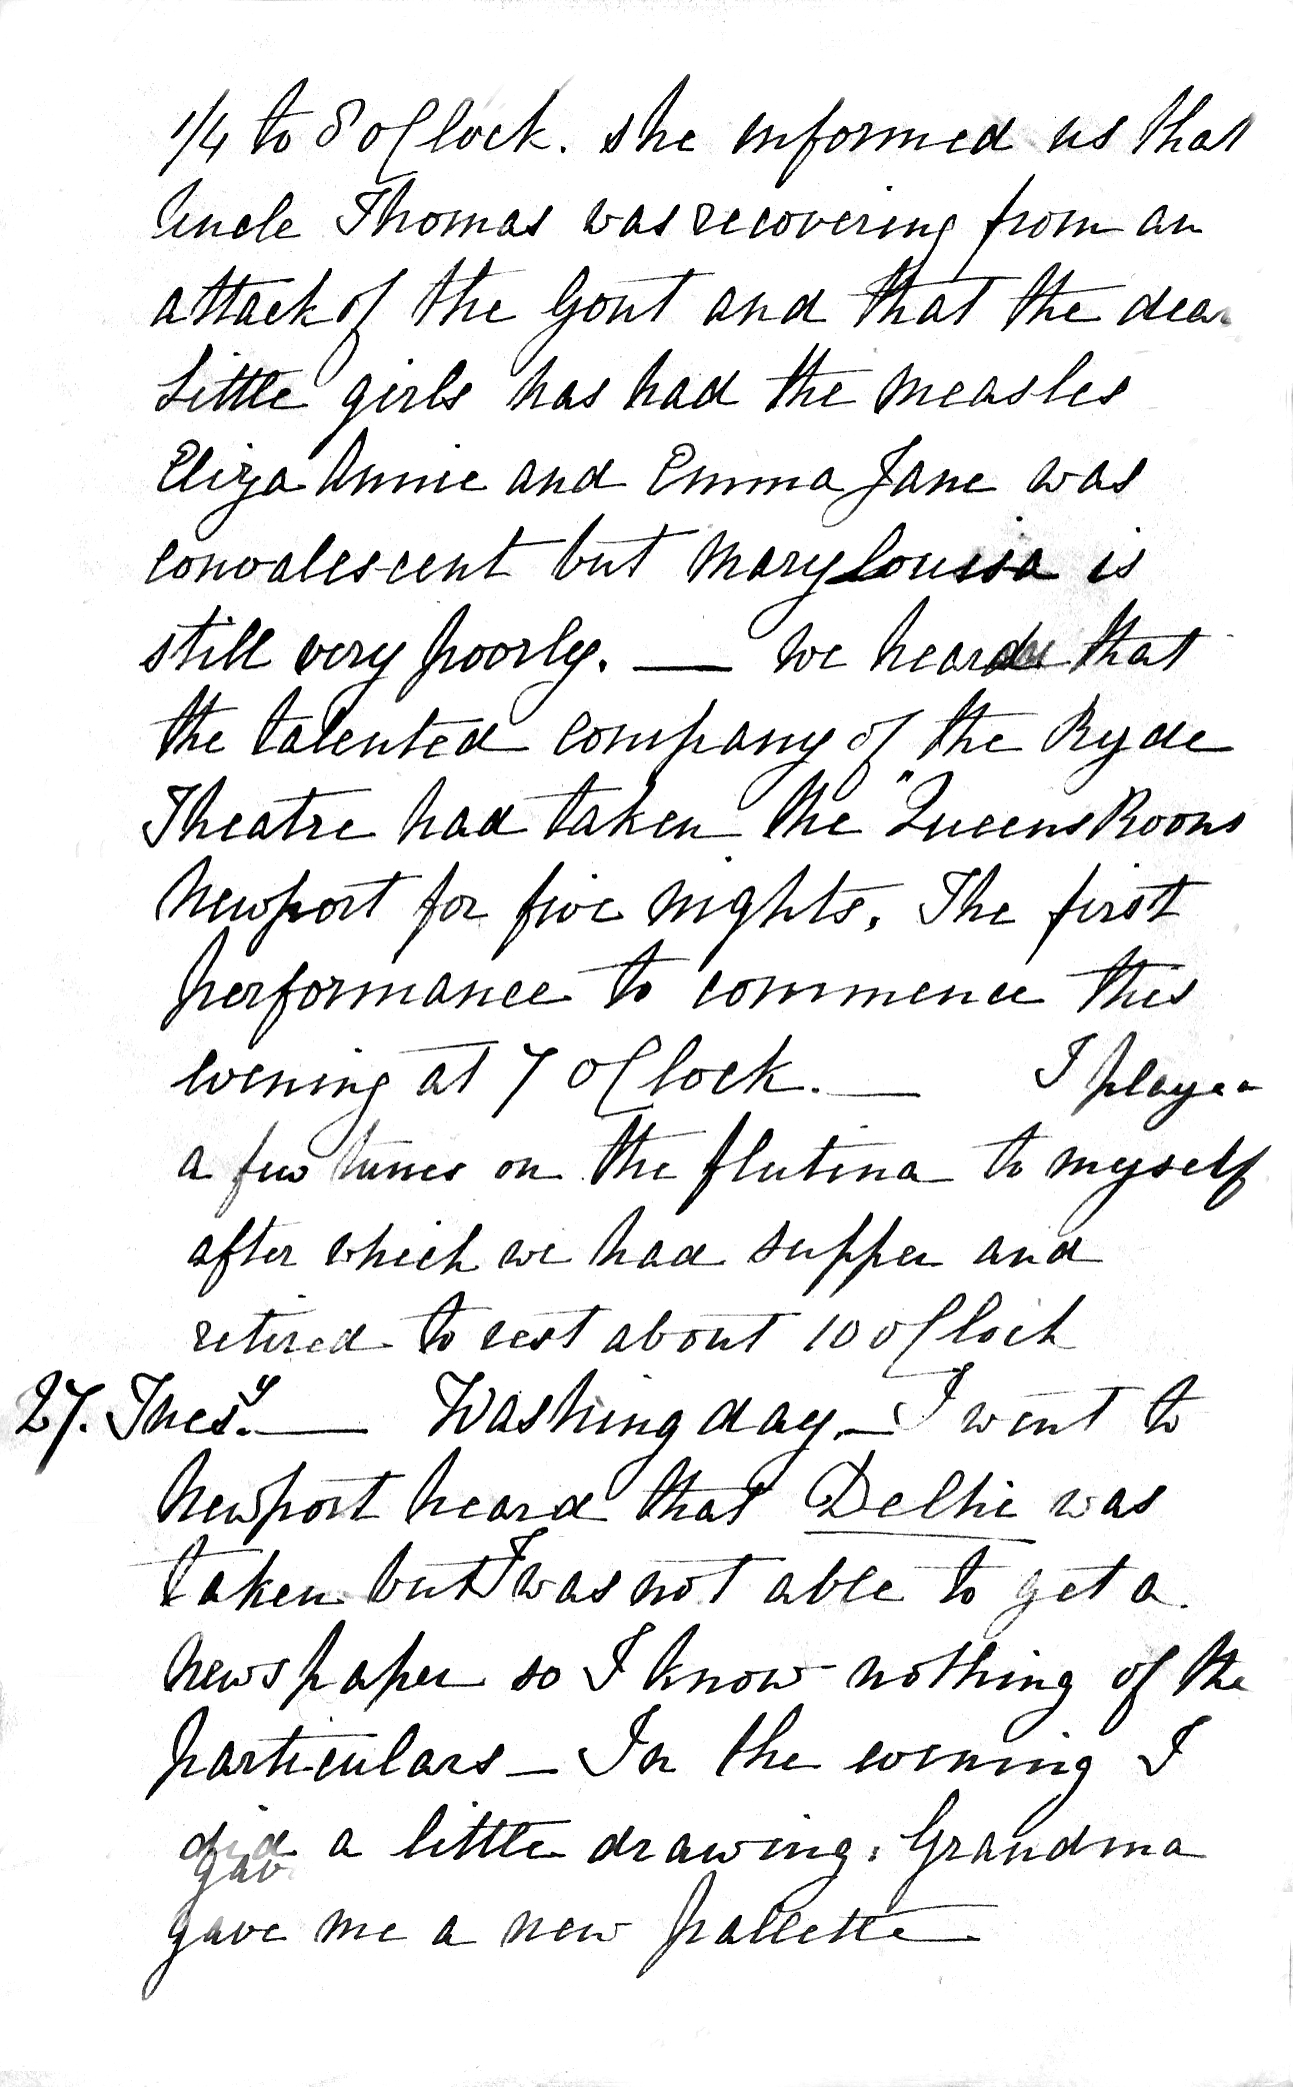 1/4 to 8 o'Clock. she informed us that
Uncle Thomas was recovering from an
attack of the Gout and that the dear
Little girls has had the measles
Eliza Annie and Emma Jane was
convalescent but Mary Louisa is
still very poorly. — We heard that
the talented company of the Ryde
Theatre had taken the "Queens Rooms
Newport for five nights. The first
performance to commence this
evening at 7 o'Clock. — I played
a few tunes on the flutina to myself
after which we had supper and
retired to rest about 10 o'Clock
27. Tuesy. — Washing day. — I went to
Newport heard that Delhi was
taken but I was not able to get a
Newspaper so I know nothing of the
particulars — In the evening I
did a little drawing. Grandma
gav
gave me a new pallette